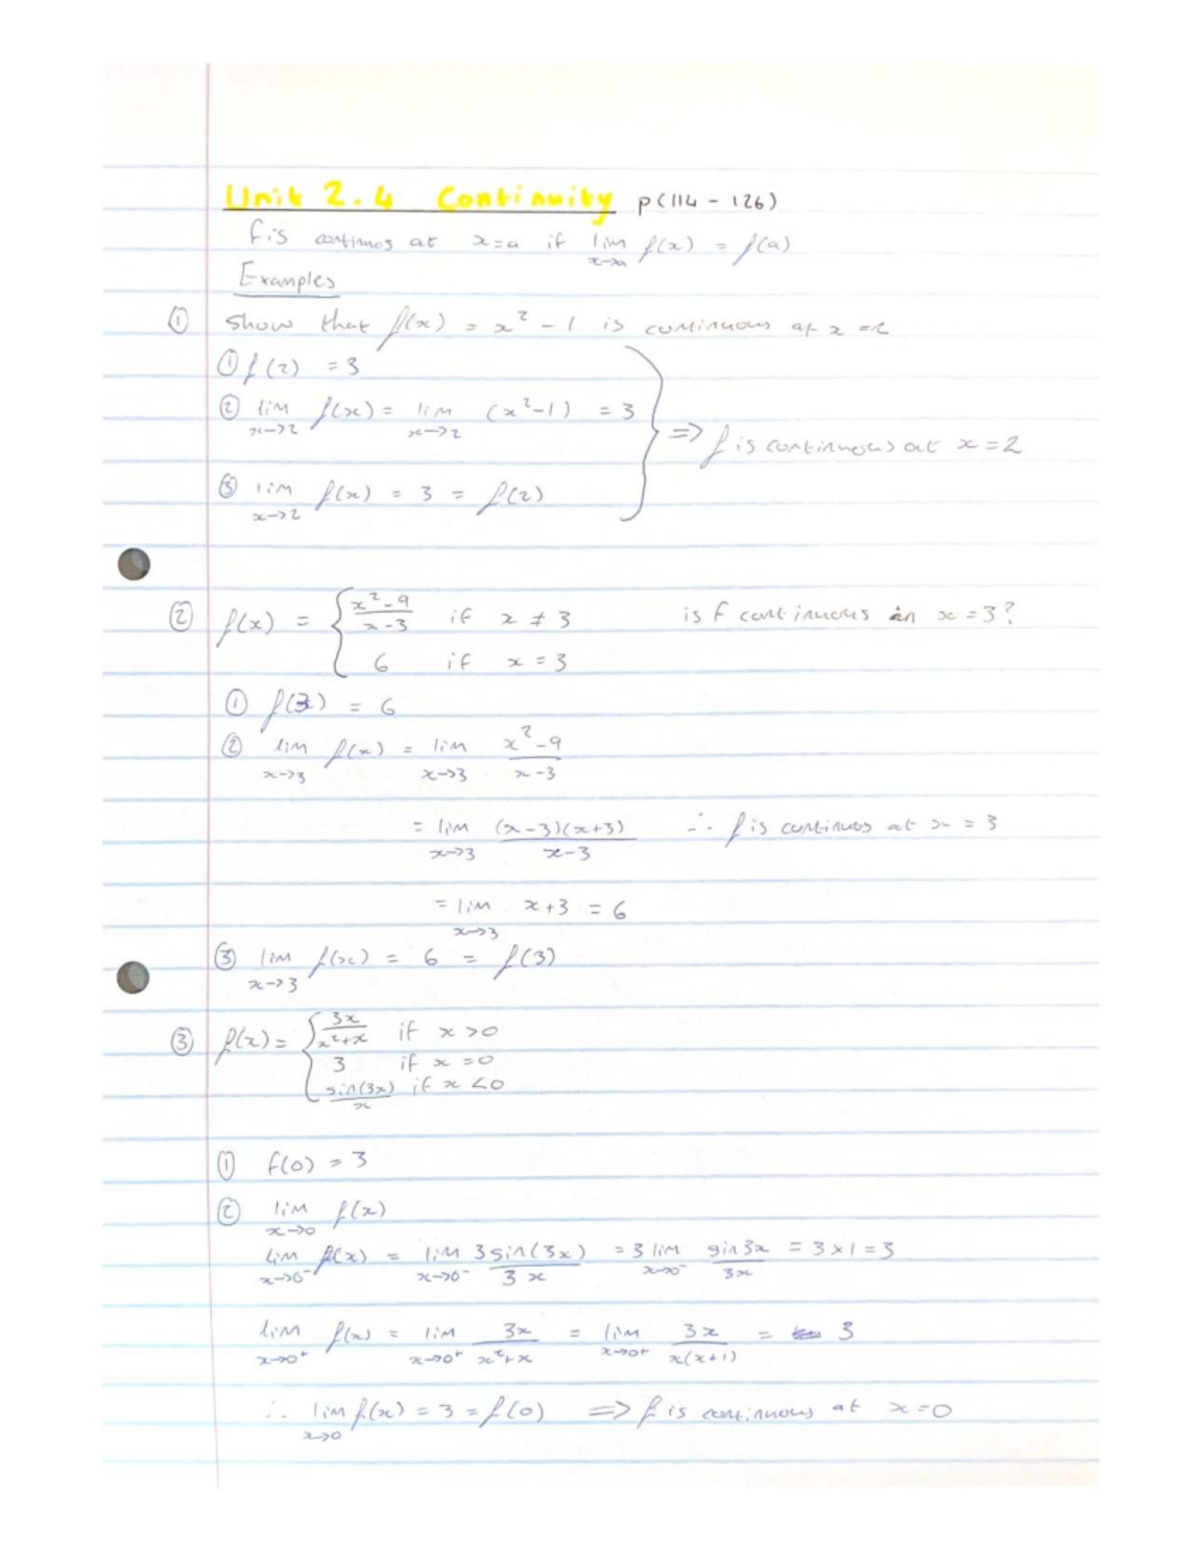 Unit 2.4 Continuity p(114 - 126)
f is continuos at x=a if lim x→a f(x) = f(a)
Examples
① Show that f(x) = x² - 1 is continuous at x = 2
① f(2) = 3
② lim x→2 f(x) = lim x→2 (x²-1) = 3
⇒ f is continuous at x = 2
③ lim x→2 f(x) = 3 = f(2)
② f(x) = { (x²-9)/(x-3) if x ≠ 3 is f continuous in x = 3?
6 if x = 3
① f(3) = 6
② lim x→3 f(x) = lim x→3 (x²-9)/(x-3)
= lim x→3 (x-3)(x+3)/(x-3) ∴ f is continuos at x = 3
= lim x→3 x+3 = 6
③ lim x→3 f(x) = 6 = f(3)
③ f(x) = { 3x/(x²+x) if x >0
3 if x =0
sin(3x)/x if x <0
① f(0) = 3
② lim x→0 f(x)
lim x→0⁻ f(x) = lim x→0⁻ 3sin(3x)/3x = 3 lim x→0⁻ sin3x/3x = 3 x 1 = 3
lim x→0⁺ f(x) = lim x→0⁺ 3x/(x²+x) = lim x→0⁺ 3x/x(x+1) = 3
∴ lim x→0 f(x) = 3 = f(0) ⇒ f is continuous at x=0